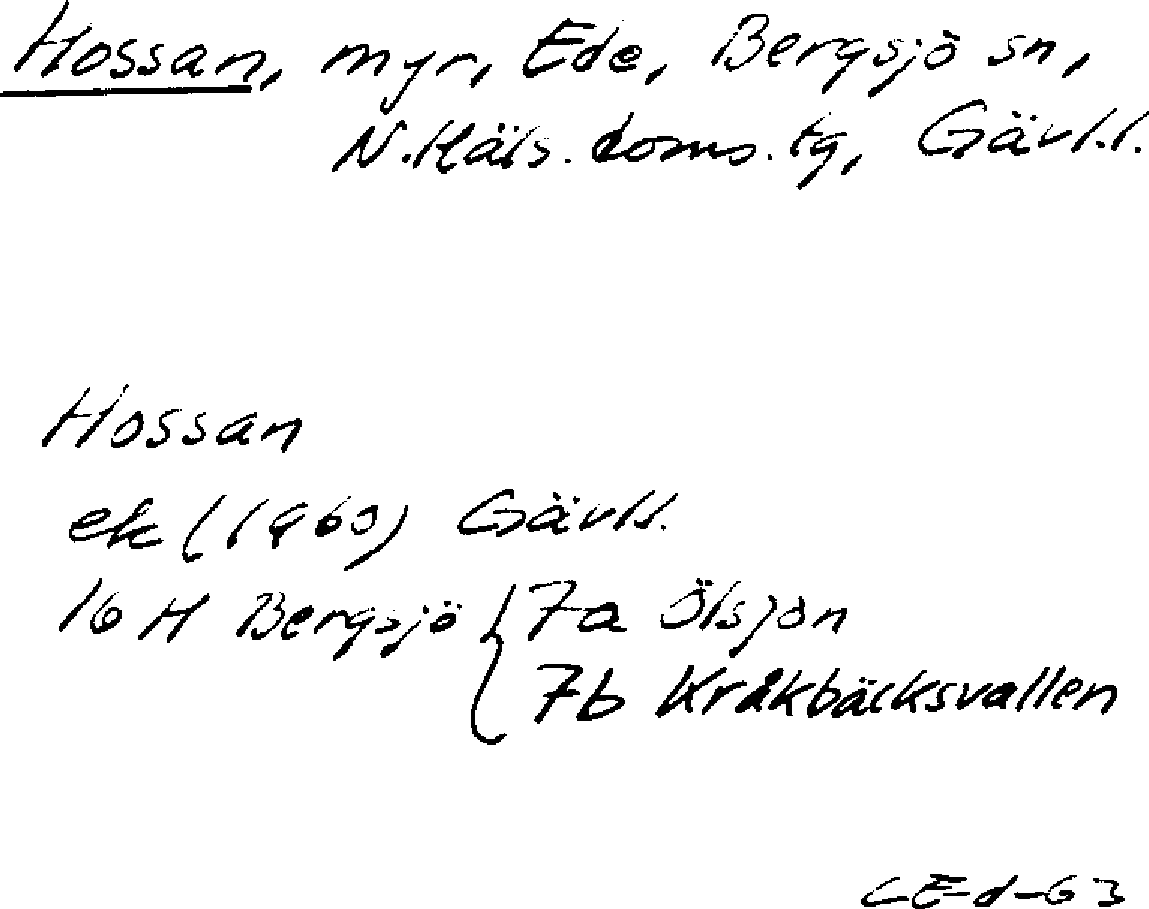 Hossan, myr, Ede, Bergsjö sn,
N. Häls. doms. tg, Gävl.l.
Hossan
ek (1960) Gävl.l.
16 H Bergsjö { 7a Ölsjön
7b Kråkbäcksvallen
CE-d-63